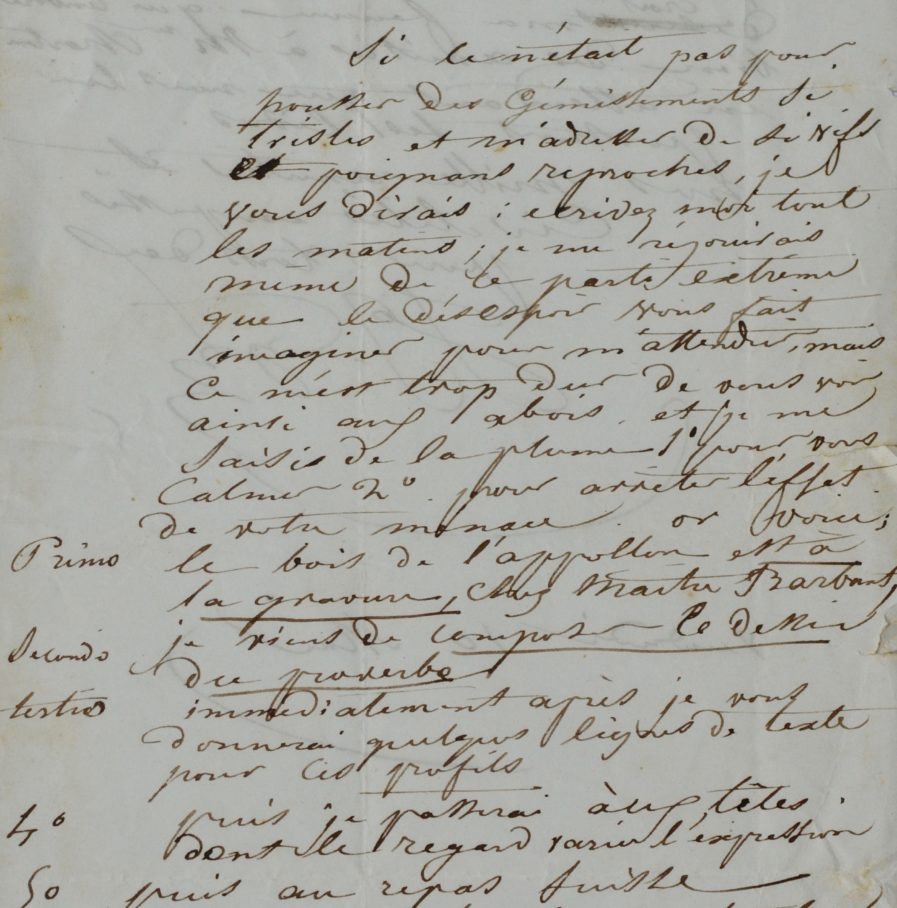 Si ce n'était pas pour
pousser des Gémissements si
tristes et m'adresser de si vifs
et poignans reproches, je
vous dirais : ecrivez moi tout
les matins, je me réjouirais
même de ce parti extrême
que le désespoir vous fait
imaginer pour m'attendrir, mais
ce m'est trop dur de vous voir
ainsi aux abois. et je me
saisis de la plume 1° pour vous
Calmer 2° pour arrêter l'effet
de votre menace. or voici :
Primo le bois de l'appollon est à
la gravure, chez Maitre Barbant,
Secondo je viens de composer le dessin
du proverbe
tertio immédiatement après je vous
donnerai quelques lignes de texte
pour ces profils
4° puis je passerai aux têtes
dont le regard varie l'expression
5° puis au repas suisse